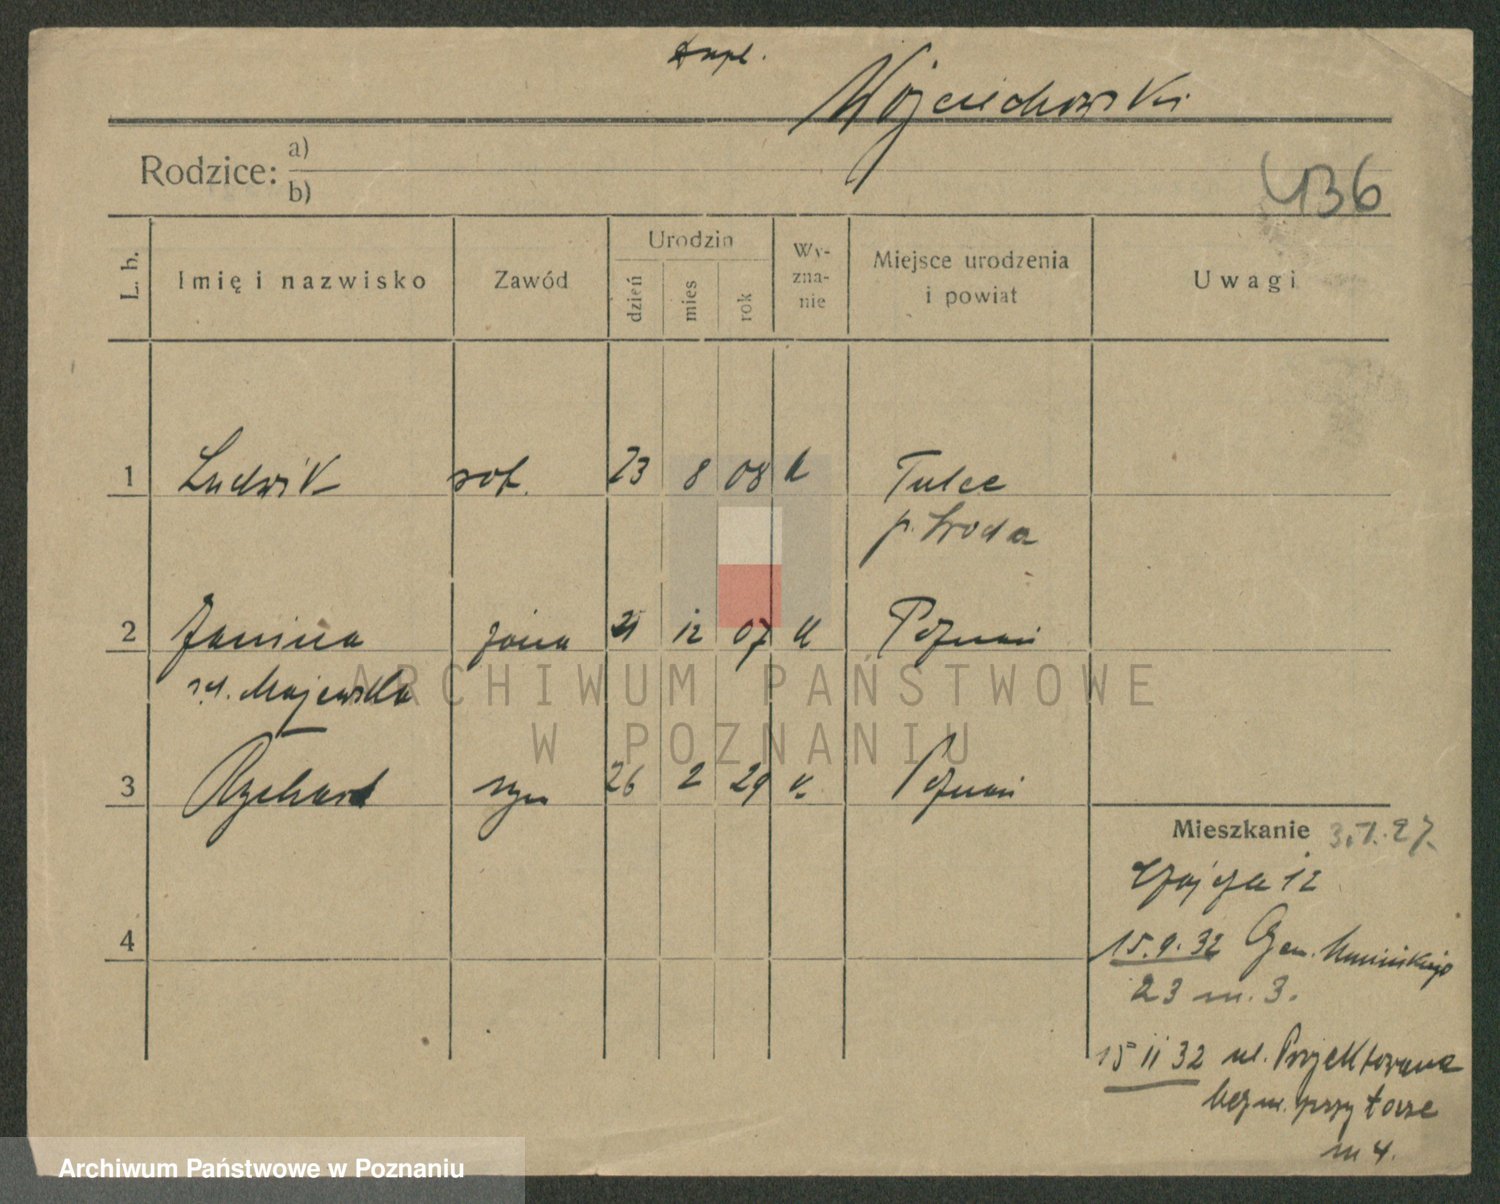 Dupl.
Wojciechowski
Rodzice: a)
b)
436
L. b.
Imię i nazwisko
Zawód
Urodzin
dzień
mies
rok
Wy-
zna-
nie
Miejsce urodzenia
i powiat
Uwagi
1 Ludwik rob. 23 8 08 k Tulce
p. Środa
2 Janina żona 21 12 07 k Poznań
Majewska
3 Rychard syn 26 2 29 k Poznań
4
Mieszkanie 3.1.27.
Czajcza 12
15.9.32 Gen. Umińskiego
23 m. 3.
15 11 32 ul. Projektowana
bez nr. przy torze
m 4.
ARCHIWUM PAŃSTWOWE
W POZNANIU
Archiwum Państwowe w Poznaniu